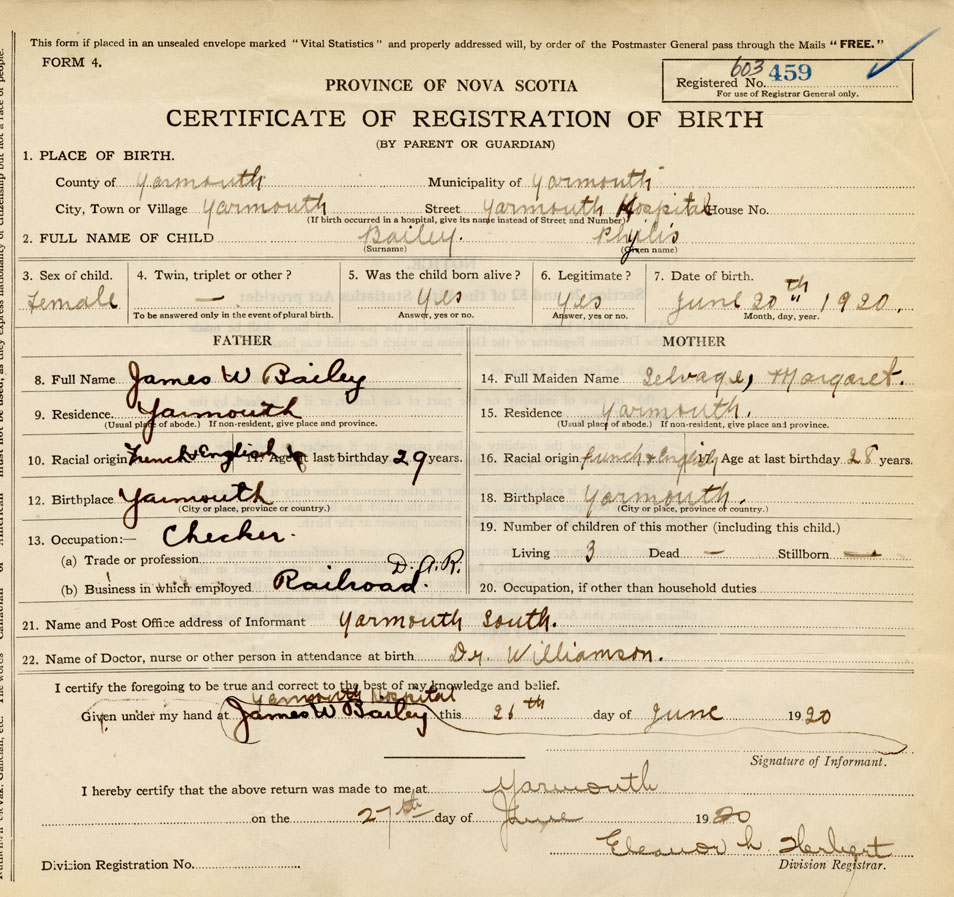 This form if placed in an unsealed envelope marked "Vital Statistics" and properly addressed will, by order of the Postmaster General pass through the Mails "FREE."
FORM 4.
603
Registered No. 459
For use of Registrar General only.
PROVINCE OF NOVA SCOTIA
CERTIFICATE OF REGISTRATION OF BIRTH
(BY PARENT OR GUARDIAN)
1. PLACE OF BIRTH.
County of Yarmouth Municipality of Yarmouth
City, Town or Village Yarmouth Street Yarmouth Hospital House No.
(If birth occurred in a hospital, give its name instead of Street and Number)
2. FULL NAME OF CHILD Bailey. Phylis
(Surname) (Given name)
3. Sex of child. 4. Twin, triplet or other? 5. Was the child born alive? 6. Legitimate? 7. Date of birth.
Female — Yes Yes June 20th 1920.
To be answered only in the event of plural birth. Answer, yes or no. Answer, yes or no. Month, day, year.
FATHER
8. Full Name James W Bailey
9. Residence. Yarmouth
(Usual place of abode.) If non-resident, give place and province.
10. Racial origin French & English 11. Age at last birthday 29 years.
12. Birthplace Yarmouth
(City or place, province or country.)
13. Occupation:— Checker.
(a) Trade or profession D.A.R.
(b) Business in which employed Railroad.
MOTHER
14. Full Maiden Name Selvage, Margaret.
15. Residence Yarmouth.
(Usual place of abode.) If non-resident, give place and province.
16. Racial origin French & English Age at last birthday 28 years.
18. Birthplace Yarmouth.
(City or place, province or country.)
19. Number of children of this mother (including this child.)
Living 3 Dead — Stillborn —
20. Occupation, if other than household duties
21. Name and Post Office address of Informant Yarmouth South.
22. Name of Doctor, nurse or other person in attendance at birth Dr. Williamson.
I certify the foregoing to be true and correct to the best of my knowledge and belief.
Yarmouth Hospital
Given under my hand at James W Bailey this 26th day of June 1920
Signature of Informant.
I hereby certify that the above return was made to me at Yarmouth
on the 27th day of June 1920
Eleanor L. Herbert
Division Registration No. Division Registrar.